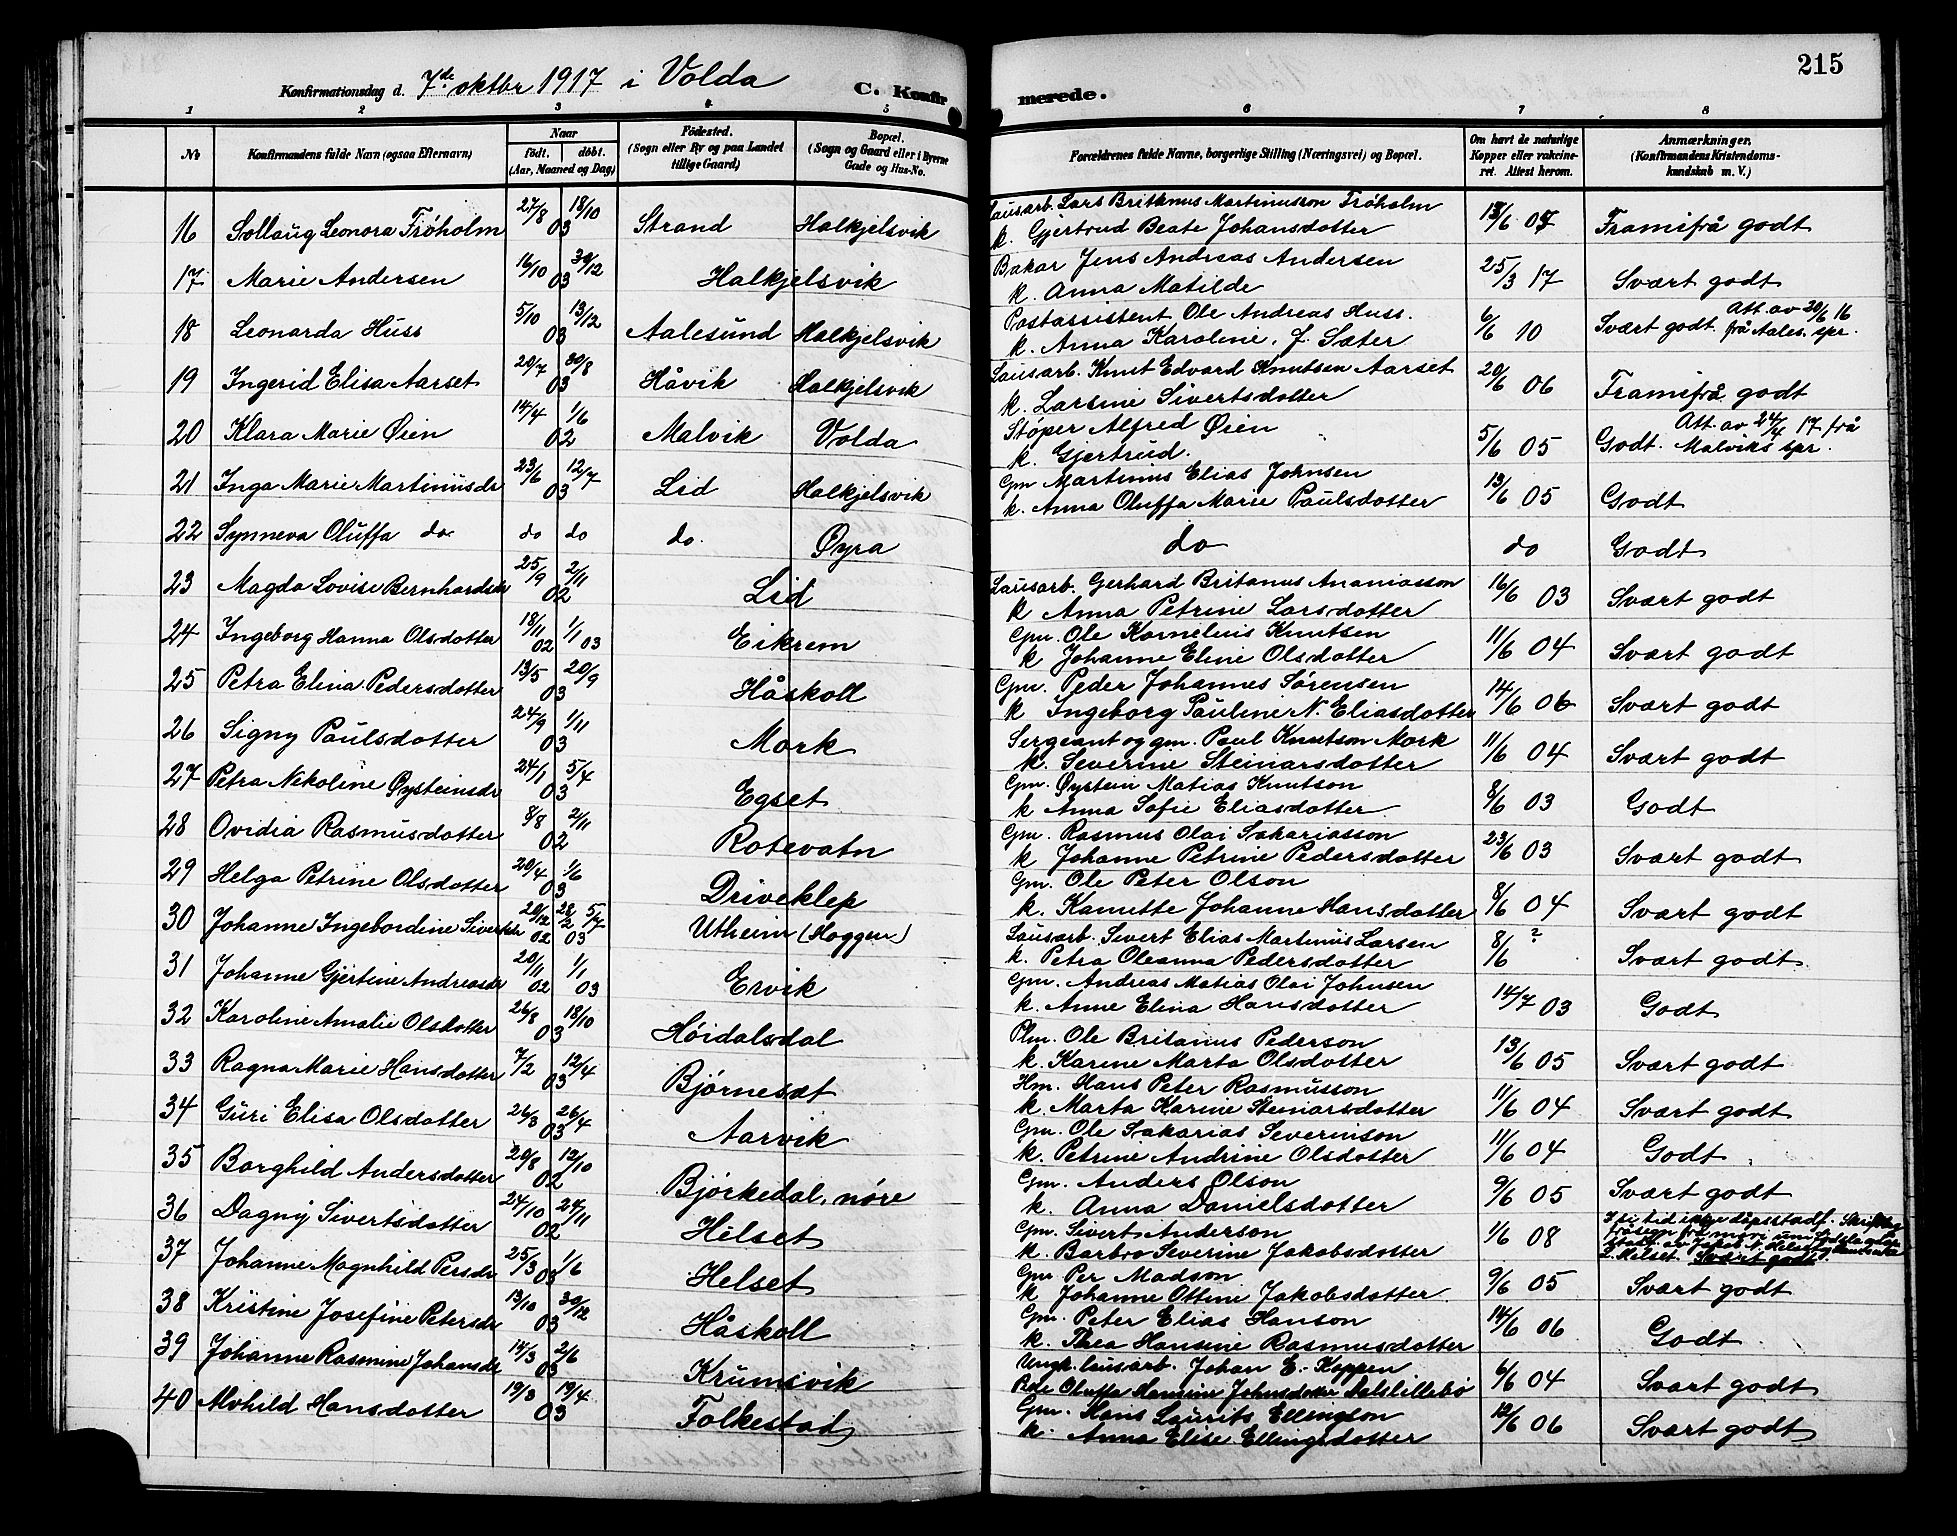 215
Konfirmationsdag d. 7de oktbr 1917 i Volda C. Konfirmerede.
1 2 3 4 5 6 7 8
No Konfirmandens fulde Navn (ogsaa Efternavn) Naar født. døbt. (Aar, Maaned og Dag) Fødested. (Sogn eller By og paa Landet tillige Gaard) Bopæl. (Sogn og Gaard eller i Byerne Gade og Hus-No. Forældrenes fulde Navne, borgerlige Stilling (Næringsvei) og Bopæl. Om havt de naturlige Kopper eller vakcineret. Attest herom. Anmærkninger. (Konfirmandens Kristendomskundskab m. V.)
16 Sollaug Leonora Trøholm 27/8 18/10 03 Strand Halkjelsvik Lausarb. Lars Britanus Martinusson Trøholm k. Gjertrud Beate Johansdotter 13/6 07 Framifrå godt
17 Marie Andersen 16/10 30/12 03 Halkjelsvik Bakar Jens Andreas Andersen k. Anna Matilde 25/3 17 Svært godt
18 Leonarda Huss 5/10 13/12 03 Aalesund Halkjelsvik Postassistent Ole Andreas Huss. k. Anna Karoline, f. Sæter 6/6 10 Svært godt. Att. av 20/6 16 frå Aales. spr.
19 Ingerid Elisa Aarset 20/7 30/8 03 Håvik Halkjelsvik Lausarb. Knut Edvard Knutsen Aarset k. Larsine Sivertsdotter 20/6 06 Framifrå godt
20 Klara Marie Øien 14/4 1/6 02 Malvik Volda Støper Alfred Øien k. Gjertrud. 5/6 05 Godt. Att. av 24/4 17 frå Malviks spr.
21 Inga Marie Martinusdr 23/6 12/7 03 Lid Halkjelsvik Gm Martinus Elias Johnsen k. Anna Oluffa Marie Paulsdotter 13/6 05 Godt
22 Synneva Oluffa do do do do. Øyra do do Godt
23 Magda Lovise Bernhardsdr 25/9 2/11 02 Lid Lausarb. Gerhard Britanus Ananiasson k Anna Petrine Larsdotter 16/6 03 Svært godt
24 Ingeborg Hanna Olsdotter 18/11 02 1/1 03 Eikrem Gm. Ole Kornelius Knutsen k Johanne Eline Olsdotter 11/6 04 Svært godt
25 Petra Elina Pedersdotter 13/5 20/9 03 Håskoll Gm. Peder Johannes Sørensen k Ingeborg Pauline N. Eliasdotter 14/6 06 Svært godt
26 Signy Paulsdotter 24/9 1/11 03 Mork Sergeant og gm. Paul Knutson Mork k. Severine Steinarsdotter 11/6 04 Svært godt
27 Petra Nikoline Øysteinsdr 24/1 5/4 03 Egset Gm. Øystein Matias Knutson k Anna Sofie Eliasdotter 8/6 03 Godt
28 Ovidia Rasmusdotter 8/8 2/11 02 Rotevatn Gm. Rasmus Olai Sakariasson k Johanne Petrine Pedersdotter 23/6 03 Svært godt
29 Helga Petrine Olsdotter 20/4 1/6 03 Driveklep Gm. Ole Peter Olson k. Kanutte Johanne Hansdotter 8/6 04 Svært godt
30 Johanne Ingebordine Sivertsdr 20/12 02 28/2 5/7 03 Utheim (Hoggen) Lausarb. Sivert Elias Martinus Larsen k. Petra Oleanna Pedersdotter 8/6 ? Svært godt
31 Johanne Gjertine Andreasdr 20/11 02 1/1 03 Ervik Gm. Andreas Matias Olai Johnsen k. Anne Elina Hansdotter 14/7 03 Godt
32 Karoline Amalie Olsdotter 26/8 18/10 03 Høidalsdal Plm. Ole Britanus Pederson k. Karine Marta Olsdotter 13/6 05 Svært godt
33 Ragna Marie Hansdotter 7/2 12/4 03 Bjørneset Hm. Hans Peter Rasmusson k. Marta Karine Steinarsdotter 11/6 04 Svært godt
34 Guri Elisa Olsdotter 26/3 26/4 03 Aarvik Gm. Ole Sakarias Severinson k. Petrine Andrine Olsdotter 11/6 04 Godt
35 Borghild Andersdotter 20/8 12/10 02 Bjørkedal, nøre Gm. Anders Olson k. Anna Danielsdotter 9/6 05 Svært godt
36 Dagny Sivertsdotter 24/10 24/11 02 Helset Gm. Sivert Anderson k. Barbro Severine Jakobsdotter 1/6 08 Svært godt.
37 Johanne Magnhild Persdr 25/3 1/6 03 Helset Gm Per Madson k Johanne Ottine Jakobsdotter 9/6 05 Svært godt
38 Kristine Josefine Petersdr 13/10 30/12 03 Håskoll Gm. Peter Elias Hanson k. Thea Hansine Rasmusdotter 14/6 06 Godt
39 Johanne Rasmine Johansdr 14/3 2/6 03 Krumsvik Ungk. lausarb. Johan E. Koppen Pike Oluffa Hansine Johnsdotter Dalslillebø 6/6 04 Svært godt
40 Alvhild Hansdotter 19/3 19/4 03 Folkestad Gm. Hans Laurits Ellingson k. Anna Elise Ellingsdotter 12/6 06 Svært godt